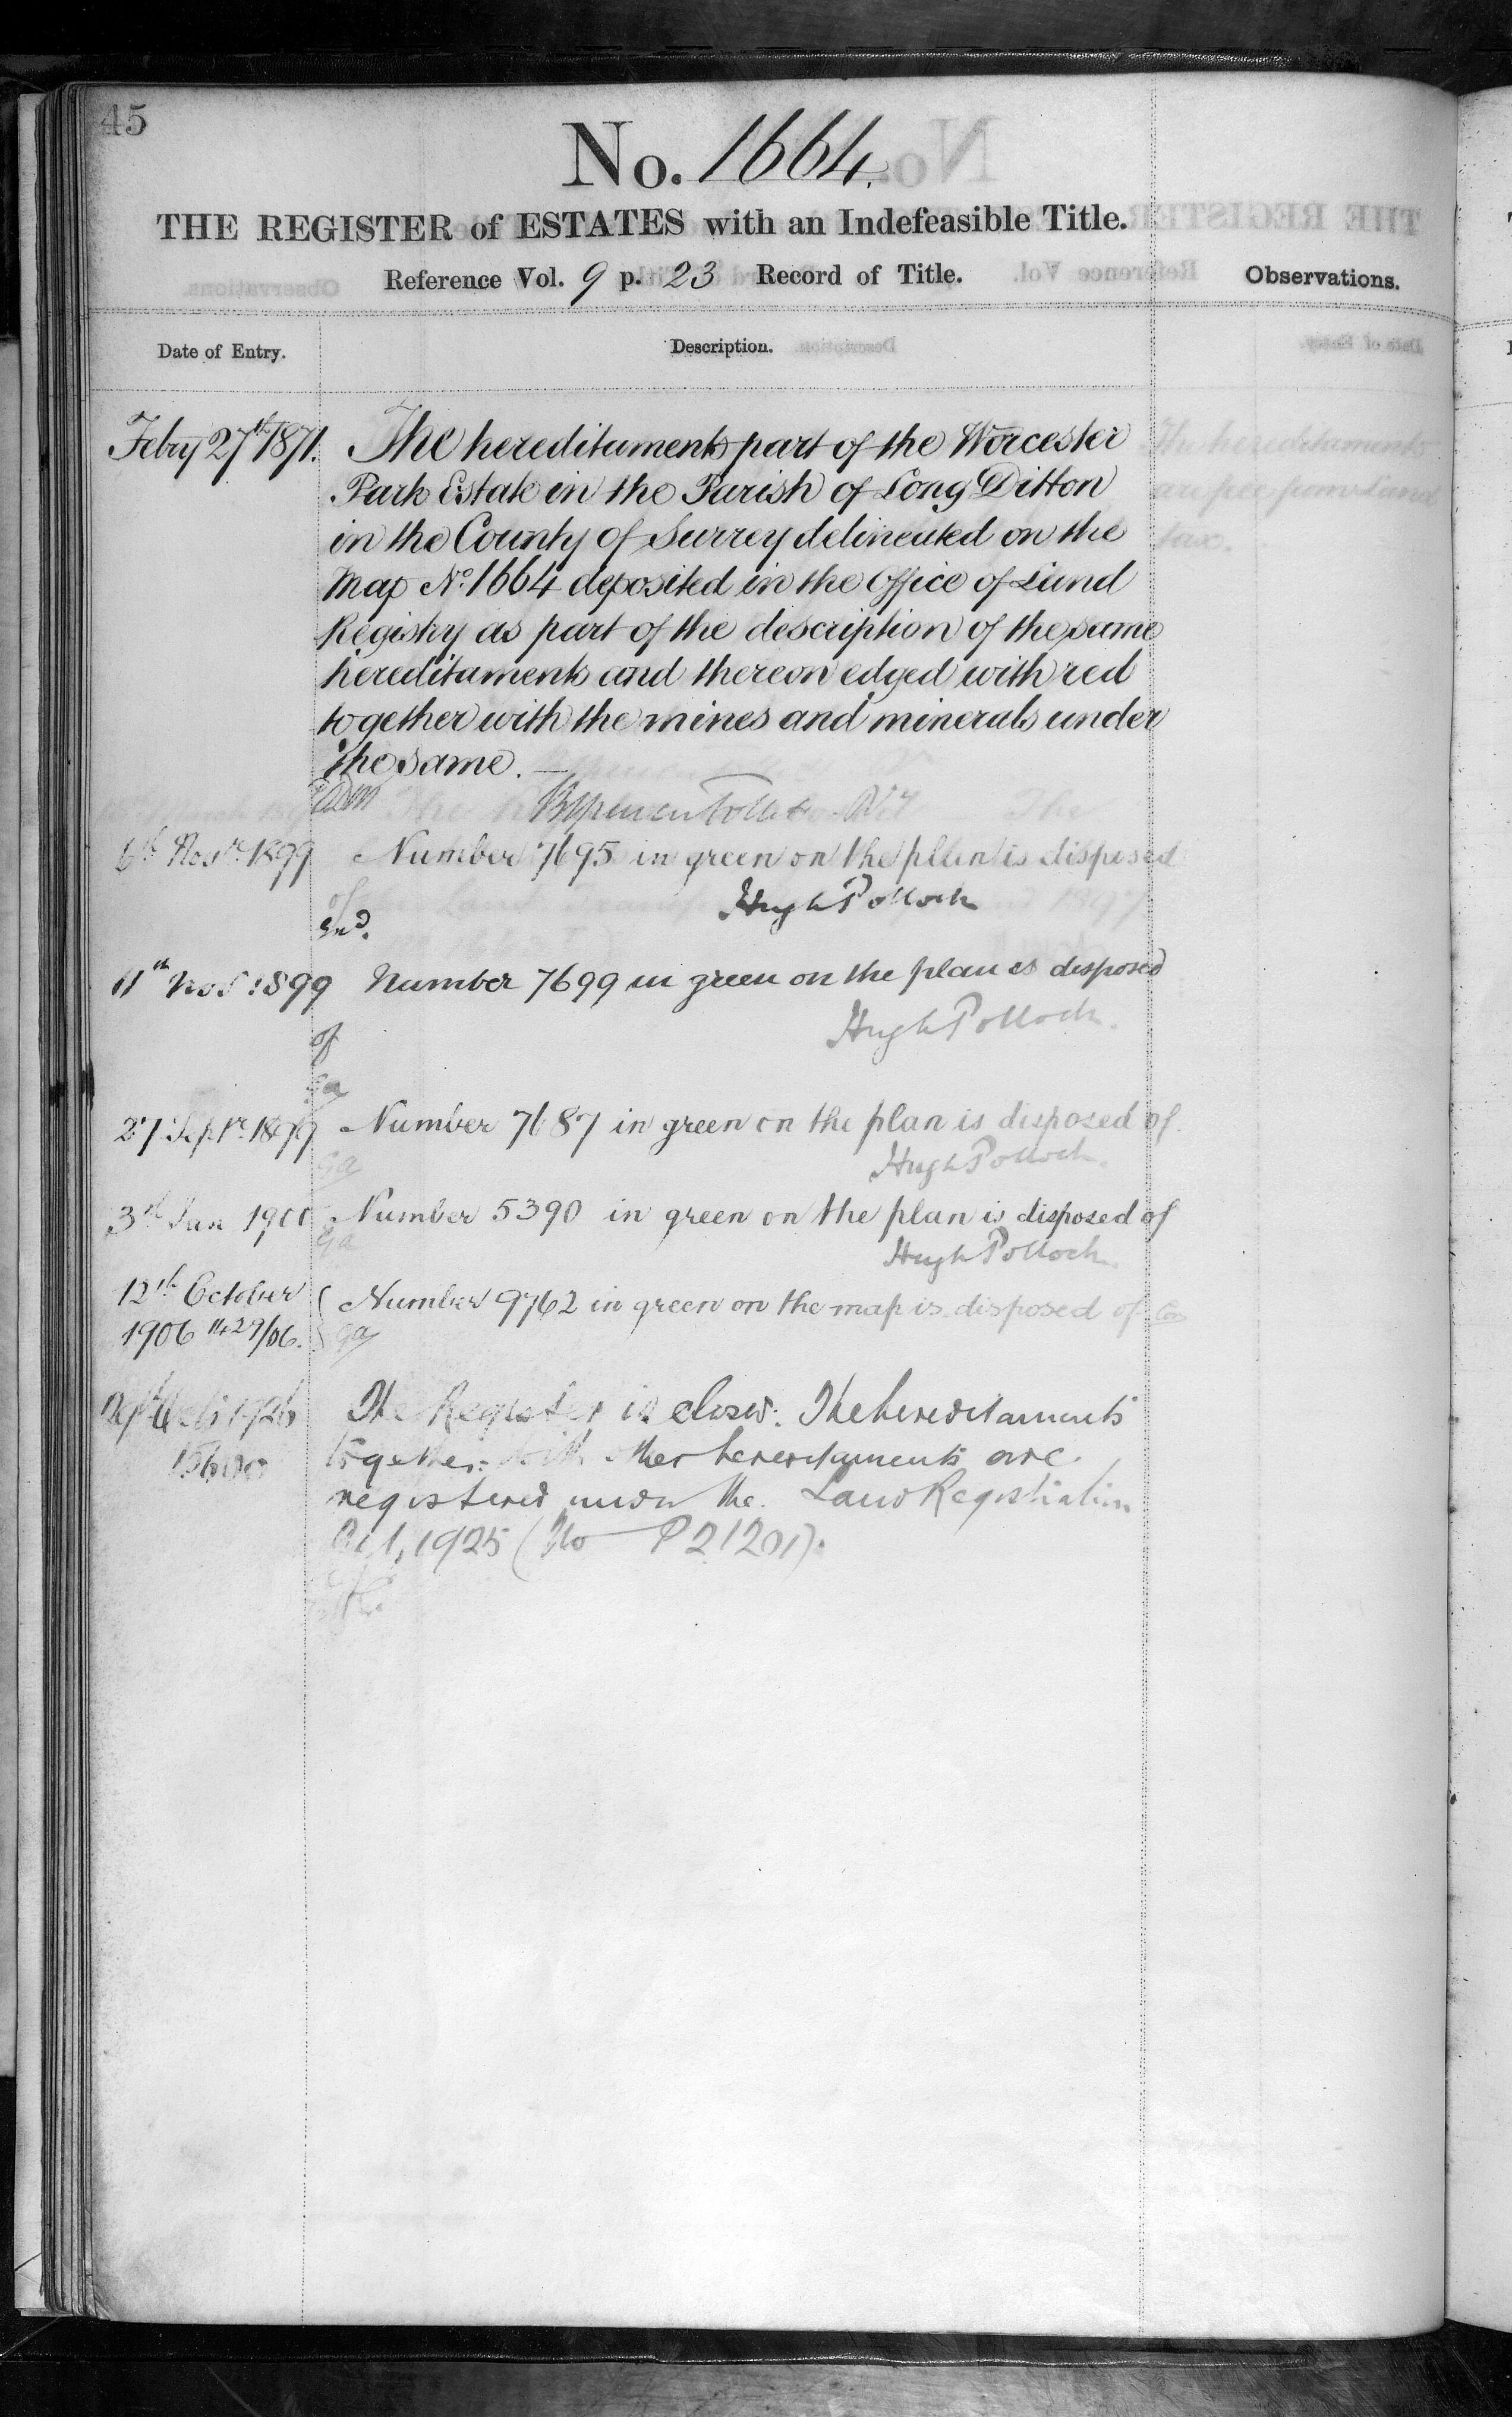 45
No. 1664.
THE REGISTER of ESTATES with an Indefeasible Title.
Reference Vol. 9 p. 23 Record of Title.
Observations.
Date of Entry.
Description.
Febry 27th 1871. The hereditaments part of the Worcester
Park Estate in the Parish of Long Ditton
in the County of Surrey delineated on the
Map No. 1664 deposited in the Office of Land
Registry as part of the description of the same
hereditaments and thereon edged with red
together with the mines and minerals under
the same.
The hereditaments
are free from Land
tax.
6th Novr. 1899 Number 7695 in green on the plan is disposed
of
Hugh Pollock
11th Nov 1899 Number 7699 in green on the plan is disposed
of
Hugh Pollock.
27 Septr. 1899 Number 7687 in green on the plan is disposed of.
Hugh Pollock.
3rd Jan 1900 Number 5390 in green on the plan is disposed of
Hugh Pollock
12th October
1906 1429/06.
Number 9762 in green on the map is disposed of
1926 The Register is closed. The hereditaments
together with other hereditaments are
registered under the Land Registration
Act, 1925 (No P21201).